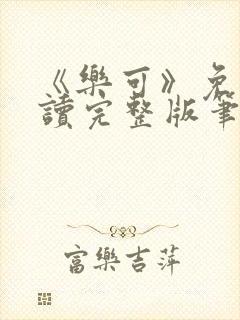 《樂可》免
讀完整版筆
富樂吉萍